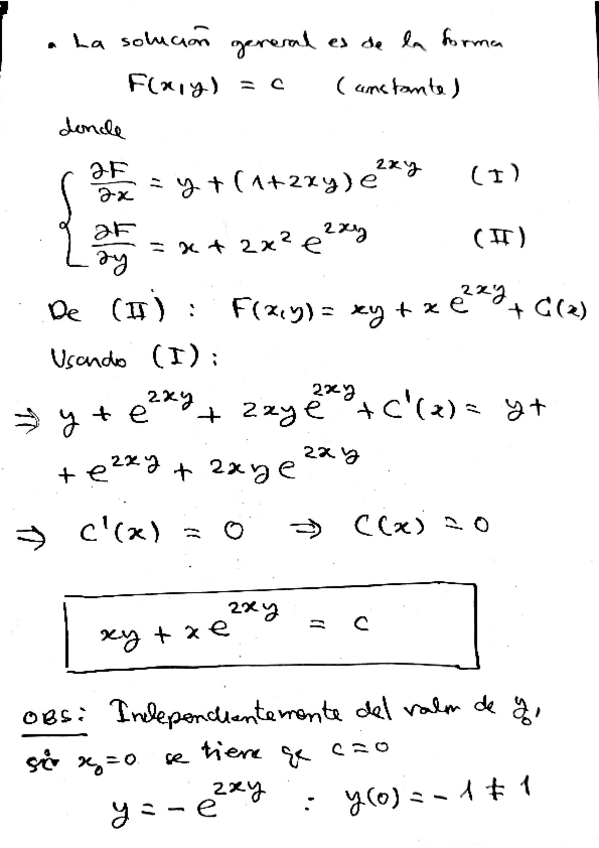 • La solución general es de la forma
F(x,y) = c (constante)
donde
{ ∂F/∂x = y + (1+2xy) e^{2xy} (I)
∂F/∂y = x + 2x² e^{2xy} (II)
De (II): F(x,y) = xy + x e^{2xy} + C(x)
Usando (I):
⇒ y + e^{2xy} + 2xy e^{2xy} + C'(x) = y +
+ e^{2xy} + 2xy e^{2xy}
⇒ C'(x) = 0 ⇒ C(x) = 0
xy + x e^{2xy} = c
OBS: Independientemente del valor de y₀,
si x₀=0 se tiene qe c=0
y = - e^{2xy} : y(0) = - 1 ≠ 1